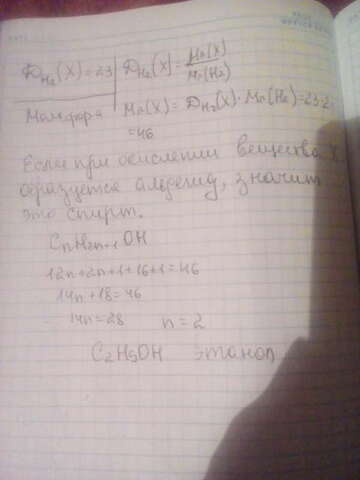 D_H2(X) = 23 | D_H2(X) = Mr(X)/Mr(H2)
Мол. фор-а | Mr(X) = D_H2(X) · Mr(H2) = 23·2
= 46
Если при окислении вещества X
образуется альдегид, значит
это спирт.
CnH2n+1OH
12n+2n+1+16+1=46
14n+18=46
14n=28 n=2
C2H5OH этанол